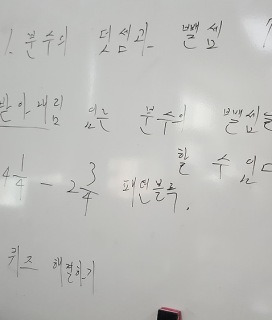 1. 분수의 덧셈과 뺄셈
받아내림 있는 분수의 뺄셈을
할 수 있다
4 1/4 - 2 3/4 패턴블록.
퀴즈 해결하기